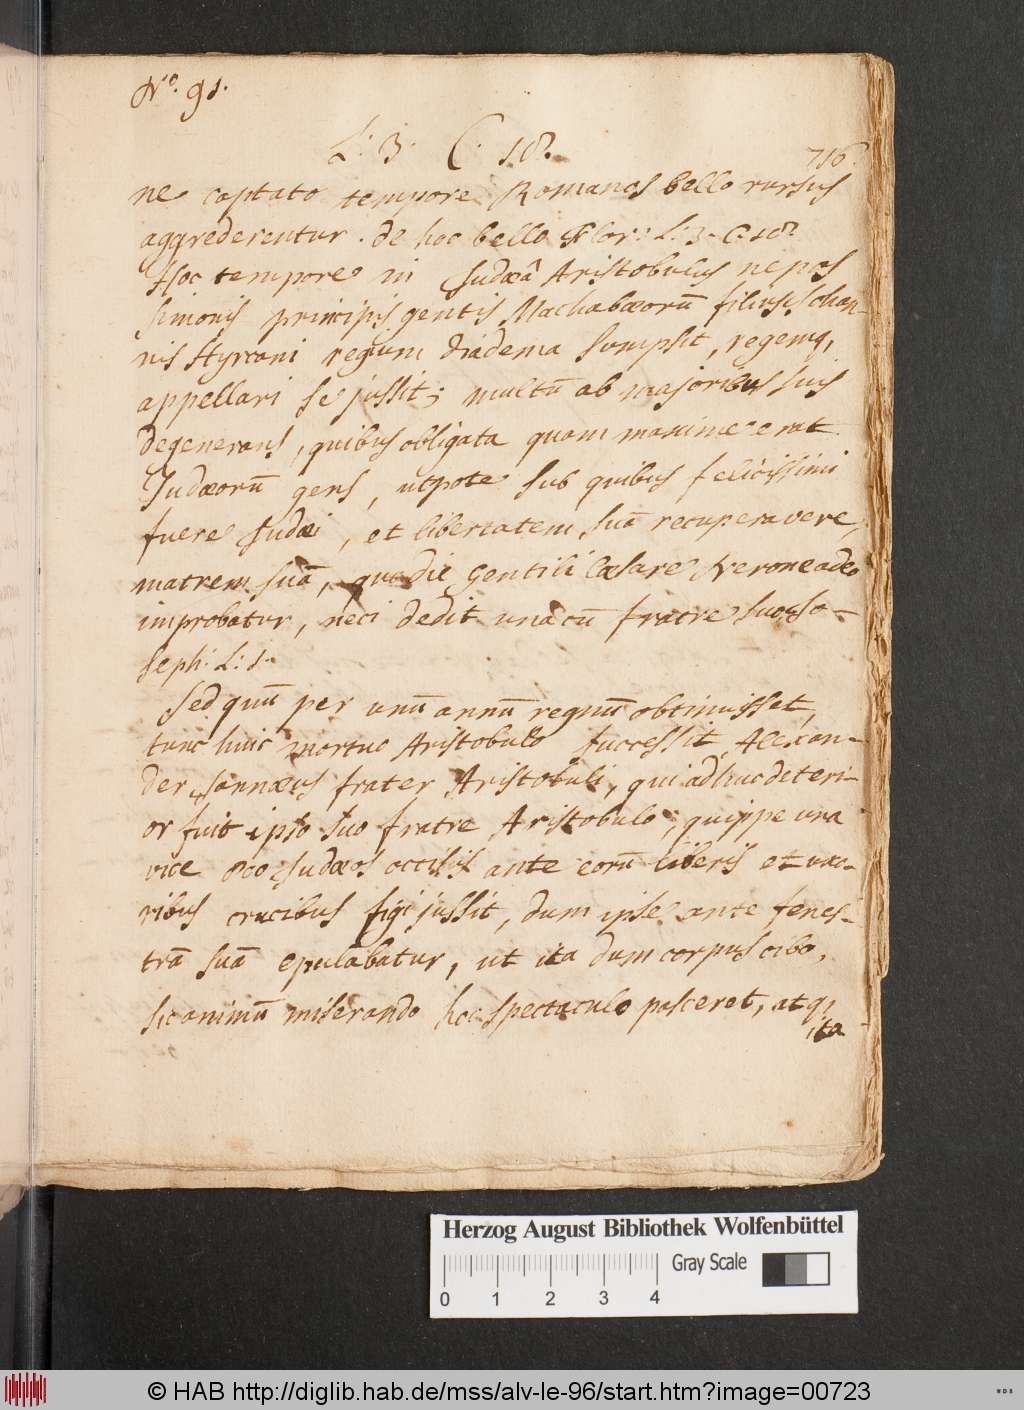 No. 91.
L: 3. C. 18.
716.
ne captato tempore Romanos bello rursus
aggrederentur. de hoc bello Flor: L: 3. C. 10?
Hoc tempore in Judæâ Aristobulus nepos
Simonis principis gentis Machabæorũ filius Johan-
nis Hyrcani regium diadema sumpsit, regemq,
appellari se jussit; multũ ab majoribus suis
degenerans, quibus obligata quam maxime erat
Judæorũ gens, utpote sub quibus felicissimi
fuere Judæi, et libertatem suã recuperavere,
matrem suã, Gentili Cæsare Nerone adeo
improbatur, neci dedit unacũ fratre suo Jo-
seph: L: 1.
Sed quũ per unũ annũ regnũ obtinuisset,
tunc huic mortuo Aristobulo successit Alexan-
der Jannæus frater Aristobuli, qui adhuc deteri-
or fuit ipso suo fratre Aristobulo, quippe una
vice 800 Judæos occisis ante eorũ liberis et uxo-
ribus crucibus figi jussit, dum ipse ante fenes-
trã suã epulabatur, ut ita dum corpus cibo,
sic animũ miserando hoc spectaculo pasceret, atq,
ita
Herzog August Bibliothek Wolfenbüttel
Gray Scale
0 1 2 3 4
© HAB http://diglib.hab.de/mss/alv-le-96/start.htm?image=00723